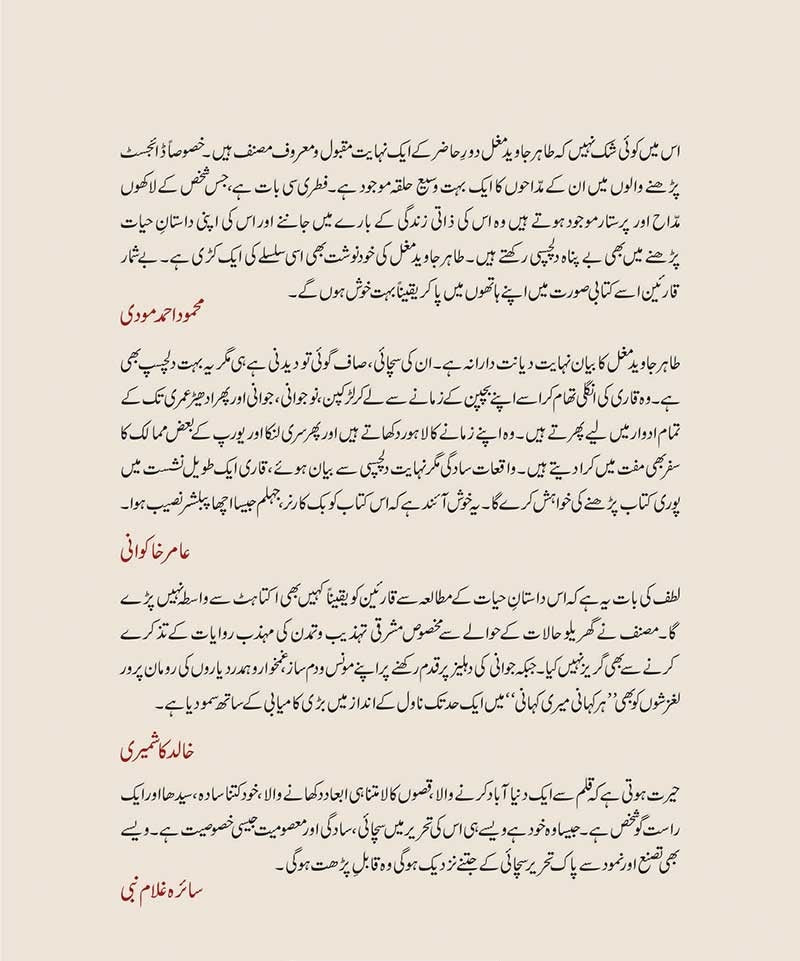 اس میں کوئی شک نہیں کہ طاہر جاوید مغل دورِ حاضر کے ایک نہایت مقبول و معروف مصنف ہیں۔ خصوصاً ڈائجسٹ
پڑھنے والوں میں ان کے مدّاحوں کا ایک بہت وسیع حلقہ موجود ہے۔ فطری سی بات ہے، جس شخص کے لاکھوں
مدّاح اور پرستار موجود ہوتے ہیں وہ اس کی ذاتی زندگی کے بارے میں جاننے اور اس کی اپنی داستانِ حیات
پڑھنے میں بھی بے پناہ دلچسپی رکھتے ہیں۔ طاہر جاوید مغل کی خودنوشت بھی اسی سلسلے کی ایک کڑی ہے۔ بے شمار
قارئین اسے کتابی صورت میں اپنے ہاتھوں میں پا کر یقیناً بہت خوش ہوں گے۔
محمود احمد مودی
طاہر جاوید مغل کا بیان نہایت دیانت دارانہ ہے۔ ان کی سچائی، صاف گوئی تو دیدنی ہے ہی مگر یہ بہت دلچسپ بھی
ہے۔ وہ قاری کی انگلی تھام کر اسے اپنے بچپن کے زمانے سے لے کر لڑکپن، نوجوانی، جوانی اور پھر ادھیڑ عمری تک کے
تمام ادوار میں لیے پھرتے ہیں۔ وہ اپنے زمانے کا لاہور دکھاتے ہیں اور پھر سری لنکا اور یورپ کے بعض ممالک کا
سفر بھی مفت میں کرا دیتے ہیں۔ واقعات سادگی مگر نہایت دلچسپی سے بیان ہوئے، قاری ایک طویل نشست میں
پوری کتاب پڑھنے کی خواہش کرے گا۔ یہ خوش آئند ہے کہ اس کتاب کو بک کارنر، جہلم جیسا اچھا پبلشر نصیب ہوا۔
عامر خاکوانی
لطف کی بات یہ ہے کہ اس داستانِ حیات کے مطالعہ سے قارئین کو یقیناً کہیں بھی اکتاہٹ سے واسطہ نہیں پڑے
گا۔ مصنف نے گھریلو حالات کے حوالے سے مخصوص مشرقی تہذیب و تمدن کی مہذب روایات کے تذکرے
کرنے سے بھی گریز نہیں کیا۔ جبکہ جوانی کی دہلیز پر قدم رکھنے پر اپنے مونس و دم ساز، غمخوار و ہمدرد یاروں کی رومان پرور
لغزشوں کو بھی ’’ہر کہانی میری کہانی‘‘ میں ایک حد تک ناول کے انداز میں بڑی کامیابی کے ساتھ سمو دیا ہے۔
خالد کاشمیری
حیرت ہوتی ہے کہ قلم سے ایک دنیا آباد کرنے والا، قصوں کا لامتناہی ابعاد دکھانے والا، خود کتنا سادہ، سیدھا اور ایک
راست گو شخص ہے۔ جیسا وہ خود ہے ویسے ہی اس کی تحریر میں سچائی، سادگی اور معصومیت جیسی خصوصیت ہے۔ ویسے
بھی تصنع اور نمود سے پاک تحریر سچائی کے جتنے نزدیک ہوگی وہ قابلِ پڑھت ہوگی۔
سائرہ غلام نبی